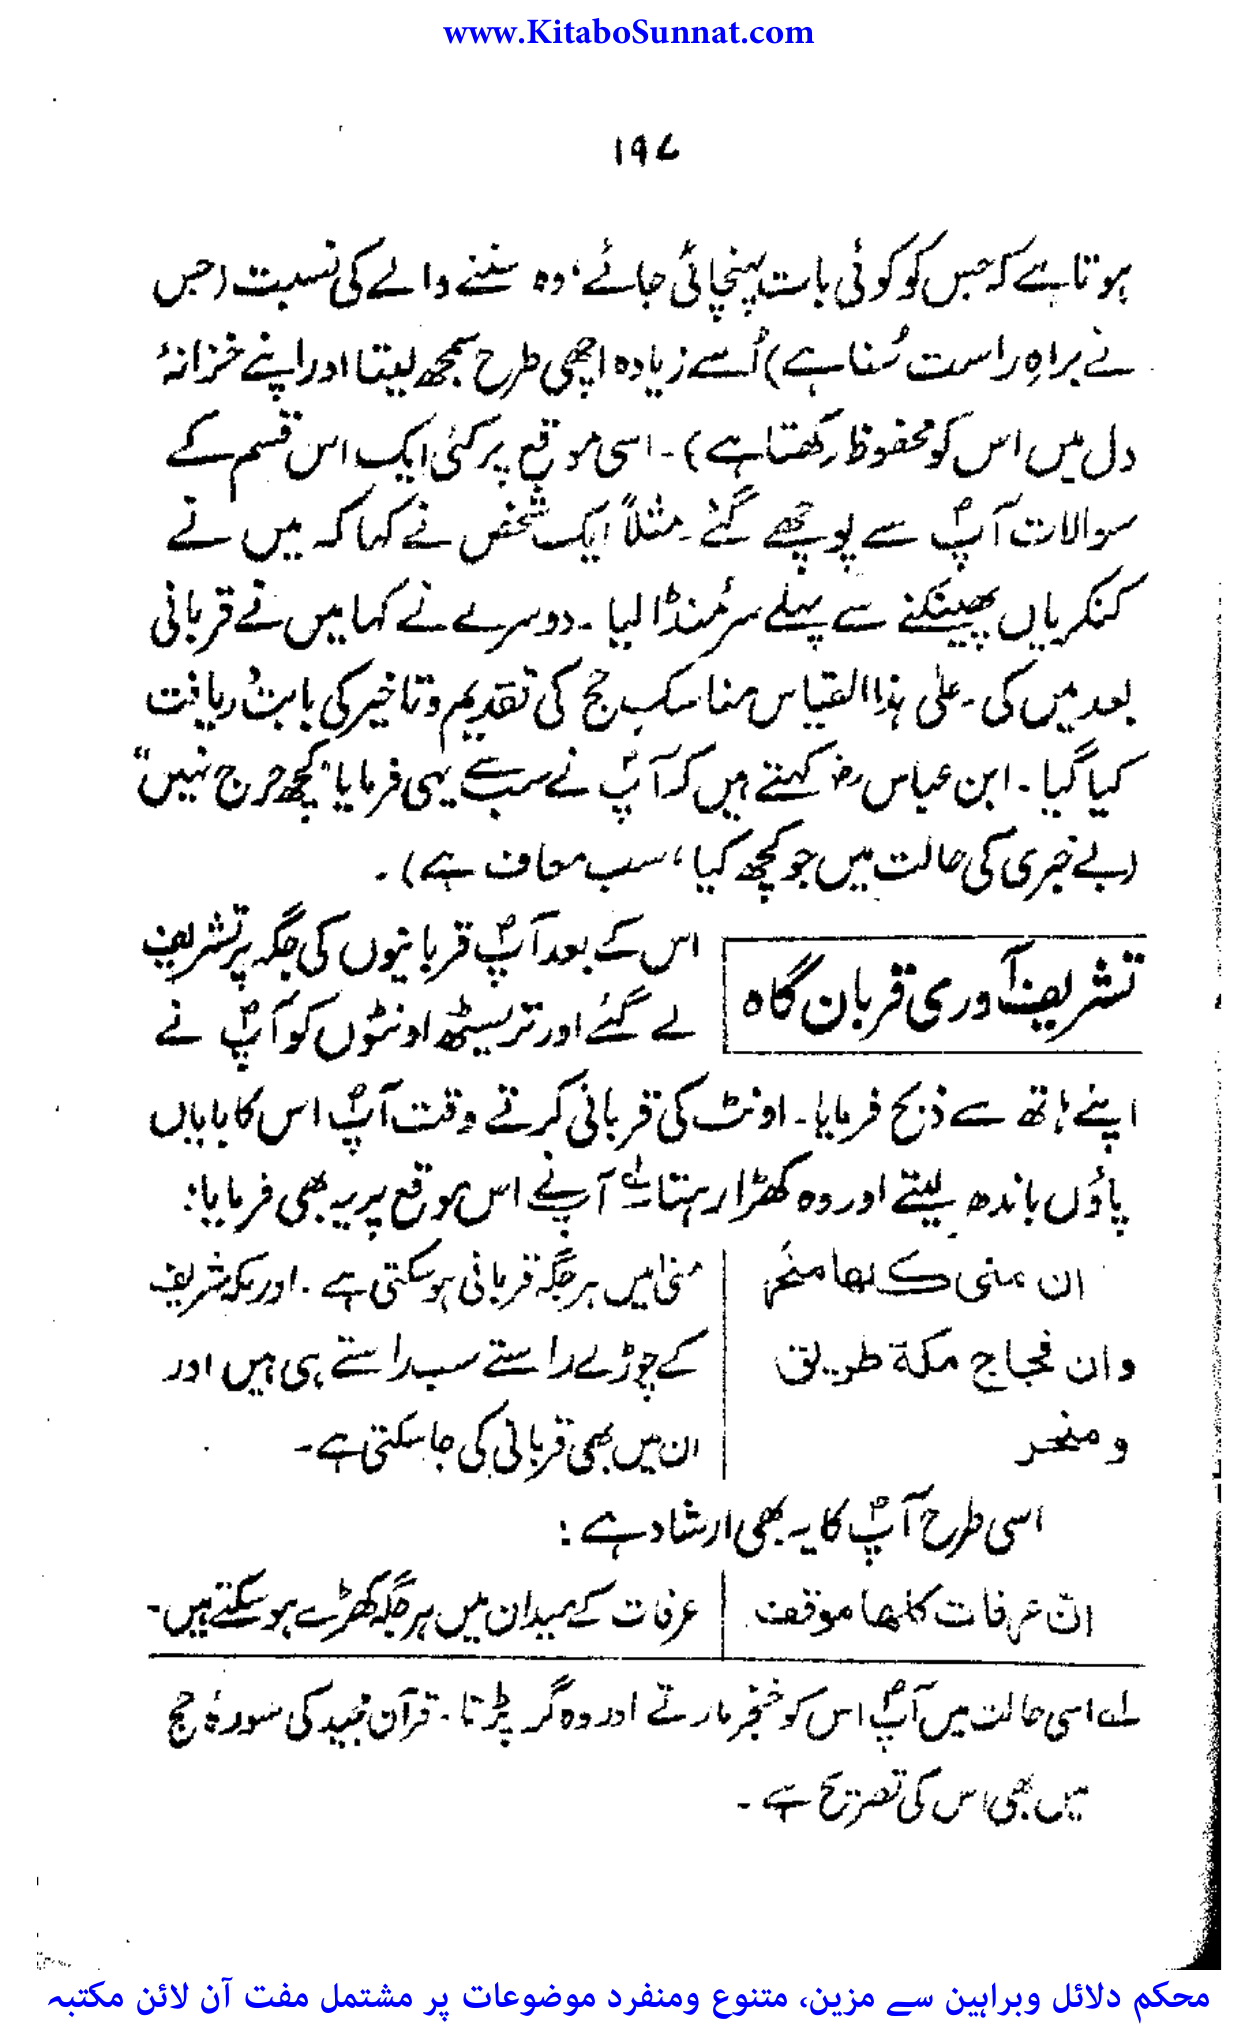 www.KitaboSunnat.com
۱۹۷
ہوتا ہے کہ جس کو کوئی بات پہنچائی جائے، وہ سننے والے کی نسبت (جس
نے براہِ راست سُنا ہے) اُسے زیادہ اچھی طرح سمجھ لیتا اور اپنے خزانۂ
دل میں اس کو محفوظ رکھتا ہے)۔ اسی موقع پر کئی ایک اس قسم کے
سوالات آپؐ سے پوچھے گئے۔ مثلاً ایک شخص نے کہا کہ میں نے
کنکریاں پھینکنے سے پہلے سر مُنڈا لیا۔ دوسرے نے کہا میں نے قربانی
بعد میں کی۔ علیٰ ہذا القیاس مناسک حج کی تقدیم و تاخیر کی بابت دریافت
کیا گیا۔ ابن عباس رضؓ کہتے ہیں کہ آپؐ نے سب سے یہی فرمایا "کچھ حرج نہیں"
(بے خبری کی حالت میں جو کچھ کیا، سب معاف ہے)۔
تشریف آوری قربان گاہ
اس کے بعد آپؐ قربانیوں کی جگہ پر تشریف
لے گئے اور تریسٹھ اونٹوں کو آپؐ نے
اپنے ہاتھ سے ذبح فرمایا۔ اونٹ کی قربانی کرتے وقت آپؐ اس کا بایاں
پاؤں باندھ لیتے اور وہ کھڑا رہتا۔لہ آپ نے اس موقع پر یہ بھی فرمایا:
ان منی کلها منحر
منیٰ میں ہر جگہ قربانی ہو سکتی ہے۔ اور مکہ شریف
وان فجاج مکة طریق
کے چوڑے راستے سب راستے ہی ہیں اور
و منحر
ان میں بھی قربانی کی جا سکتی ہے۔
اسی طرح آپؐ کا یہ بھی ارشاد ہے:
انّ عرفات کلها موقف
عرفات کے میدان میں ہر جگہ کھڑے ہو سکتے ہیں۔
لہ اسی حالت میں آپؐ اس کو خنجر مارتے اور وہ گر پڑتا۔ قرآن مجید کی سورۂ حج
میں بھی اس کی تصریح ہے۔
محکم دلائل وبراہین سے مزین، متنوع ومنفرد موضوعات پر مشتمل مفت آن لائن مکتبہ